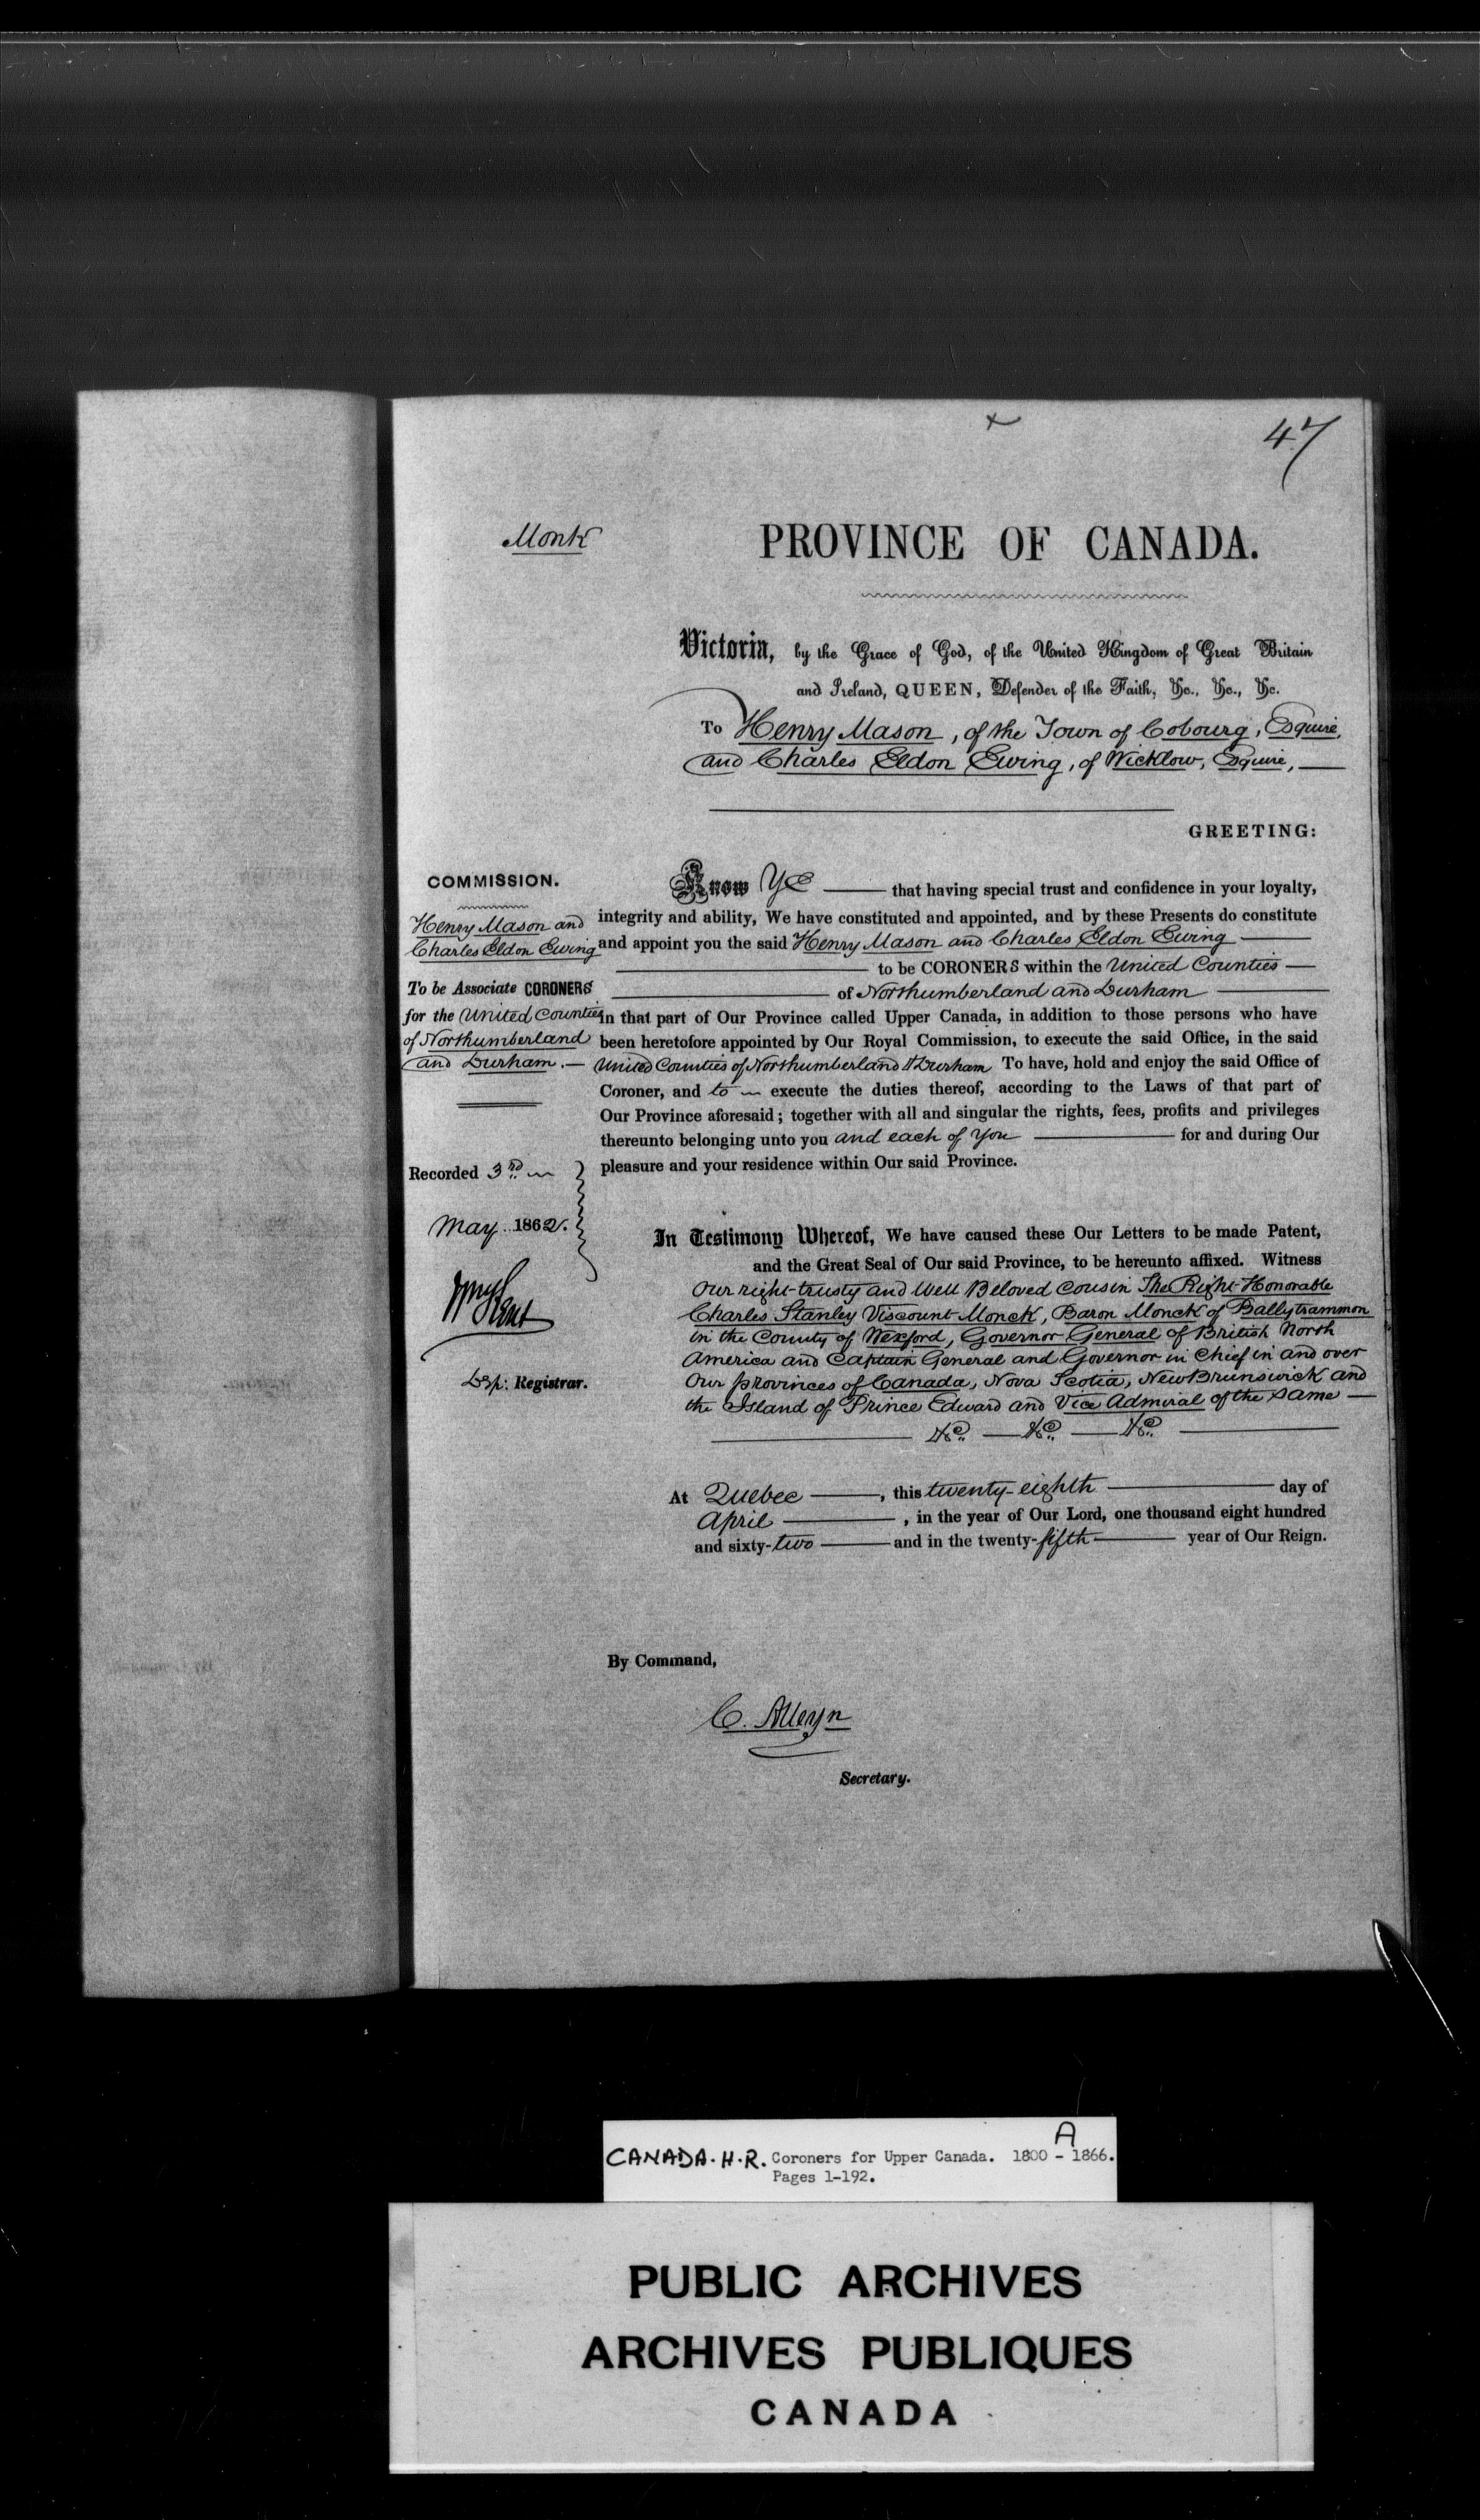 47
Monk
PROVINCE OF CANADA.
Victoria, by the Grace of God, of the United Kingdom of Great Britain
and Ireland, QUEEN, Defender of the Faith, &c., &c., &c.
To Henry Mason, of the Town of Cobourg, Esquire,
and Charles Eldon Ewing, of Wicklow, Esquire,
GREETING:
COMMISSION.
Henry Mason and
Charles Eldon Ewing
To be Associate CORONERS
for the United Counties
of Northumberland
and Durham.
Know Ye that having special trust and confidence in your loyalty,
integrity and ability, We have constituted and appointed, and by these Presents do constitute
and appoint you the said Henry Mason and Charles Eldon Ewing
to be CORONERS within the United Counties
of Northumberland and Durham
in that part of Our Province called Upper Canada, in addition to those persons who have
been heretofore appointed by Our Royal Commission, to execute the said Office, in the said
United Counties of Northumberland & Durham To have, hold and enjoy the said Office of
Coroner, and to execute the duties thereof, according to the Laws of that part of
Our Province aforesaid; together with all and singular the rights, fees, profits and privileges
thereunto belonging unto you and each of you for and during Our
pleasure and your residence within Our said Province.
Recorded 3rd
May 1862.
Wm Kent
Dep: Registrar.
In Testimony Whereof, We have caused these Our Letters to be made Patent,
and the Great Seal of Our said Province, to be hereunto affixed. Witness
Our right-trusty and Well Beloved Cousin The Right Honorable
Charles Stanley Viscount Monck, Baron Monck of Ballytrammon
in the County of Wexford, Governor General of British North
America and Captain General and Governor in Chief in and over
Our provinces of Canada, Nova Scotia, New Brunswick and
the Island of Prince Edward and Vice Admiral of the same
&c. &c. &c.
At Quebec, this twenty-eighth day of
April, in the year of Our Lord, one thousand eight hundred
and sixty-two and in the twenty-fifth year of Our Reign.
By Command,
C. Alleyn
Secretary.
A
CANADA. H. R. Coroners for Upper Canada. 1800 - 1866.
Pages 1-192.
PUBLIC ARCHIVES
ARCHIVES PUBLIQUES
CANADA